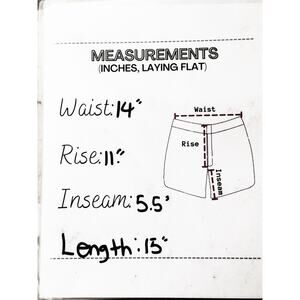 MEASUREMENTS
(INCHES, LAYING FLAT)
Waist: 14"
Waist
Rise: 11"
Rise
Inseam: 5.5'
Inseam
Length: 13"